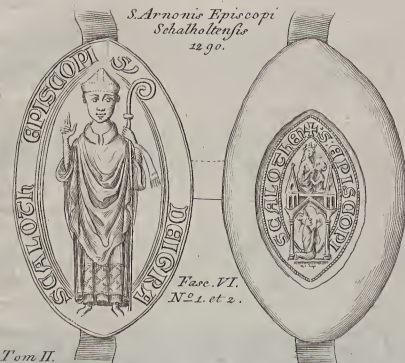 S. Arnonis Episcopi
Schalholtensis
1290.
S'
DEIGRA
SCALOTH EPISCOPI
S' EPISCOPI
SCALOTHEN
Fasc. VI.
Nº 1. et 2.
Tom II.